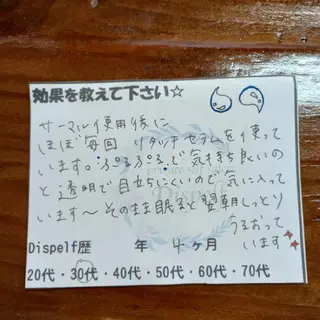 効果を教えて下さい☆
サーマル使用後に
ほぼ毎回 リタッチセラムを使って
います。ぷるぷるで気持ち良いの
と透明で目立ちにくいので気に入って
います〜そのまま眠ると翌朝しっとり
うるおって
います
Dispelf歴 年 4ヶ月
20代・30代・40代・50代・60代・70代